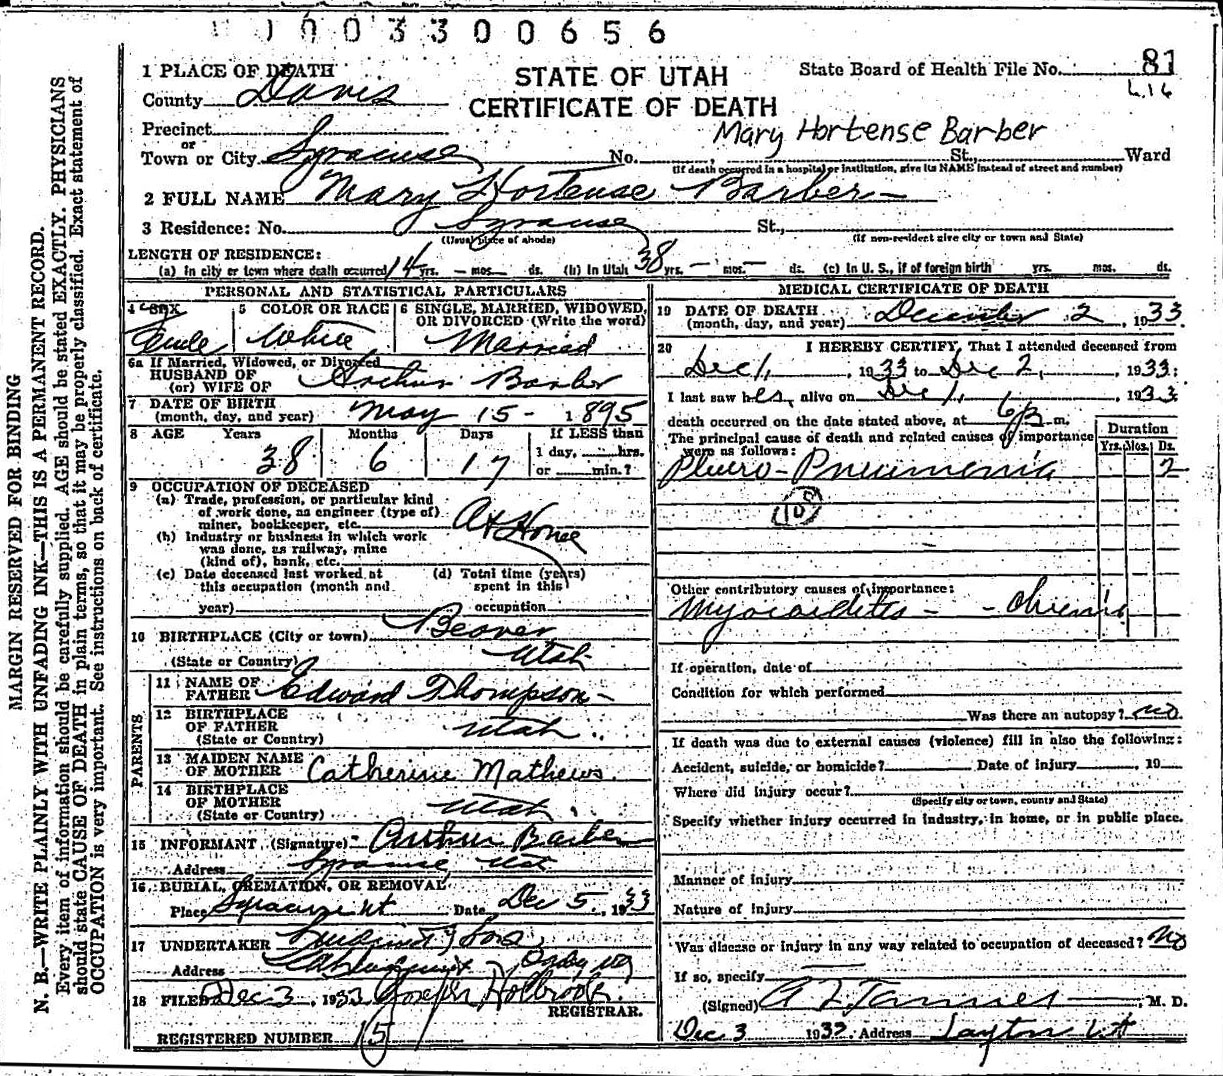 1003300656
1 PLACE OF DEATH
STATE OF UTAH
State Board of Health File No. 81
County Davis
CERTIFICATE OF DEATH
Precinct
Mary Hortense Barber
or
Town or City Syracuse No. , St., Ward
(If death occurred in a hospital or institution, give its NAME instead of street and number)
2 FULL NAME Mary Hortense Barber
3 Residence: No. Syracuse St.,
(Usual place of abode) (If non-resident give city or town and State)
LENGTH OF RESIDENCE:
(a) In city or town where death occurred 14 yrs. — mos. ds. (b) In Utah 38 yrs. — mos. — ds. (c) In U. S., if of foreign birth yrs. mos. ds.
PERSONAL AND STATISTICAL PARTICULARS
4 SEX 5 COLOR OR RACE 6 SINGLE, MARRIED, WIDOWED,
OR DIVORCED (Write the word)
White Married
6a If Married, Widowed, or Divorced
HUSBAND OF
(or) WIFE OF Arthur Barber
7 DATE OF BIRTH
(month, day, and year) May 15 - 1895
8 AGE Years Months Days If LESS than
1 day, hrs.
38 6 17 or min.?
9 OCCUPATION OF DECEASED
(a) Trade, profession, or particular kind
of work done, as engineer (type of)
miner, bookkeeper, etc. At Home
(b) Industry or business in which work
was done, as railway, mine
(kind of), bank, etc.
(c) Date deceased last worked at (d) Total time (years)
this occupation (month and spent in this
year) occupation
10 BIRTHPLACE (City or town) Beaver
(State or Country) Utah
PARENTS
11 NAME OF
FATHER Edward Thompson
12 BIRTHPLACE
OF FATHER Utah
(State or Country)
13 MAIDEN NAME
OF MOTHER Catherine Mathews
14 BIRTHPLACE
OF MOTHER Utah
(State or Country)
15 INFORMANT (Signature) Arthur Barber
Address Syracuse, Utah
16 BURIAL, CREMATION, OR REMOVAL
Place Syracuse Ut Date Dec 5, 1933
17 UNDERTAKER & Sons
Address
18 FILED Dec 3, 1933 Joseph Holbrook
REGISTRAR.
REGISTERED NUMBER 15
MEDICAL CERTIFICATE OF DEATH
19 DATE OF DEATH
(month, day, and year) December 2, 1933
20 I HEREBY CERTIFY, That I attended deceased from
Dec 1, 1933 to Dec 2, 1933:
I last saw her alive on Dec 1, 1933
death occurred on the date stated above, at m.
The principal cause of death and related causes of importance
were as follows:
Duration
Yrs. Mos. Ds.
Pleuro-Pneumonia 2
Other contributory causes of importance:
Myocarditis - - chronic
If operation, date of
Condition for which performed
Was there an autopsy? no
If death was due to external causes (violence) fill in also the following:
Accident, suicide, or homicide? Date of injury , 19
Where did injury occur?
(Specify city or town, county and State)
Specify whether injury occurred in industry, in home, or in public place.
Manner of injury
Nature of injury
Was disease or injury in any way related to occupation of deceased? No
If so, specify
(Signed) A Z Tanner, M. D.
Dec 3 1933 Address Layton Ut
MARGIN RESERVED FOR BINDING
N. B.—WRITE PLAINLY WITH UNFADING INK—THIS IS A PERMANENT RECORD.
Every item of information should be carefully supplied. AGE should be stated EXACTLY. PHYSICIANS
should state CAUSE OF DEATH in plain terms, so that it may be properly classified. Exact statement of
OCCUPATION is very important. See instructions on back of certificate.